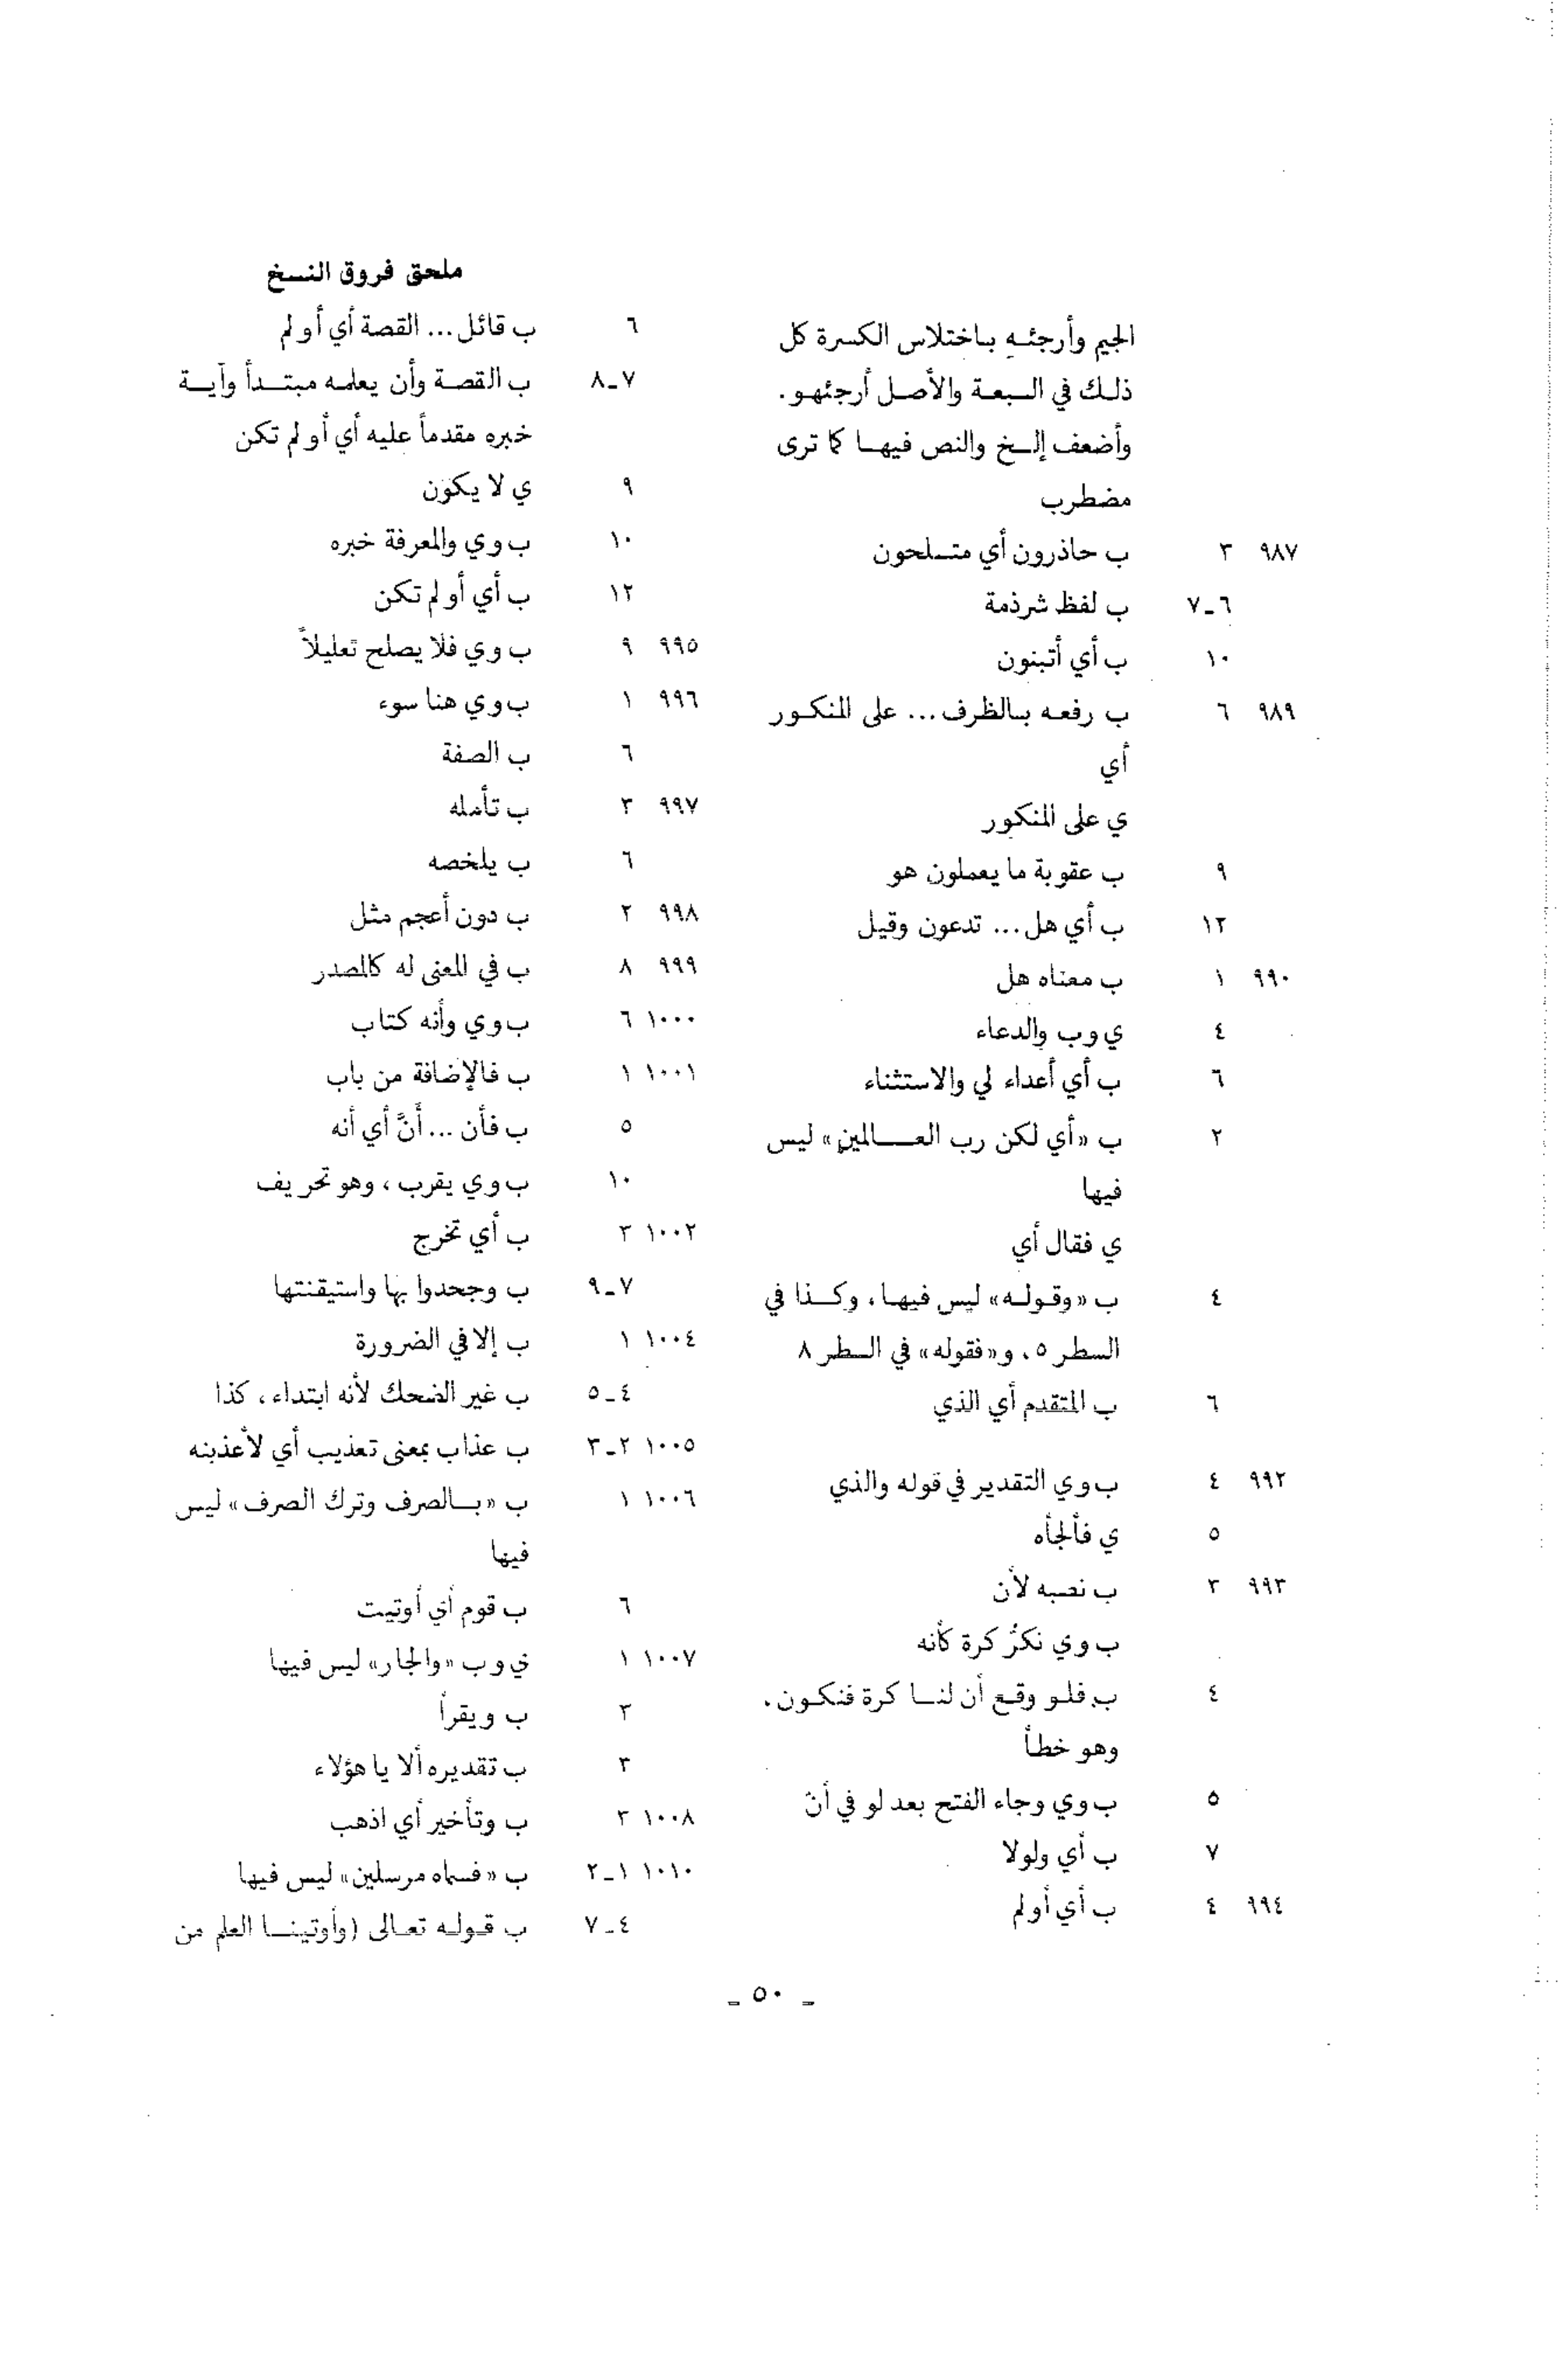 ملحق فروق النسخ
الجيم وأرجئـه بـاختلاس الكسرة كل
ذلـك في السبعـة والأصـل أرجئهـو.
وأضعف إلـخ والنص فيهـا كا ترى
مضطرب
٩٨٧ ٣ ب حاذرون أي متسلحون
٦ـ٧ ب لفظ شرذمة
١٠ ب أي أتبنون
٩٨٩ ٦ ب رفعـه بـالظرف... على المنكـور
أي
ي على المنكور
٩ ب عقوبة ما يعملون هو
١٢ ب أي هل... تدعون وقيل
٩٩٠ ١ ب معناه هل
٤ ي وب والدعاء
٦ ب أي أعداء لي والاستثناء
٢ ب «أي لكن رب العـالمين» ليس
فيها
ي فقال أي
٤ ب «وقـولـه» ليس فيهـا، وكـذا في
السطر ٥، و«فقوله» في السطر ٨
٦ ب المتقدم أي الذي
٩٩٢ ٤ ب وي التقدير في قوله والذي
٥ ي فألجأه
٩٩٣ ٣ ب نصبه لأن
ب وي نكرُّ كرة كأنه
٤ ب فلـو وقـع أن لنـا كرة فنكـون،
وهو خطأ
٥ ب وي وجاء الفتح بعد لو في أنّ
٧ ب أي ولولا
٩٩٤ ٤ ب أي أولم
٦ ب قائل... القصة أي أو لم
٧ـ٨ ب القصـة وأن يعلمـه مبتـدأ وآيـة
خبره مقدماً عليه أي أو لم تكن
٩ ي لا يكون
١٠ ب وي والمعرفة خبره
١٢ ب أي أو لم تكن
٩٩٥ ٩ ب وي فلا يصلح تعليلاً
٩٩٦ ١ ب وي هنا سوء
٦ ب الصفة
٩٩٧ ٣ ب تأمله
٦ ب يلخصه
٩٩٨ ٢ ب دون أعجم مثل
٩٩٩ ٨ ب في المعنى له كالمصدر
١٠٠٠ ٦ ب وي وأنه كتاب
١٠٠١ ١ ب فالإضافة من باب
٥ ب فأن... أَنَّ أي أنه
١٠ ب وي يقرب، وهو تحريف
١٠٠٢ ٣ ب أي تخرج
٧ـ٩ ب وجحدوا بها واستيقنتها
١٠٠٤ ١ ب إلا في الضرورة
٤ـ٥ ب غير الضحك لأنه ابتداء، كذا
١٠٠٥ ٢ـ٣ ب عذاب بمعنى تعذيب أي لأعذبنه
١٠٠٦ ١ ب «بـالصرف وترك الصرف» ليس
فيها
٦ ب قوم أي أوتيت
١٠٠٧ ١ ي وب «والجار» ليس فيها
٣ ب ويقرأ
٣ ب تقديره ألا يا هؤلاء
١٠٠٨ ٣ ب وتأخير أي اذهب
١٠١٠ ١ـ٢ ب «فسماه مرسلين» ليس فيها
٤ـ٧ ب قـولـه تعـالى (وأوتينـا العلم من
ـ ٥٠ ـ